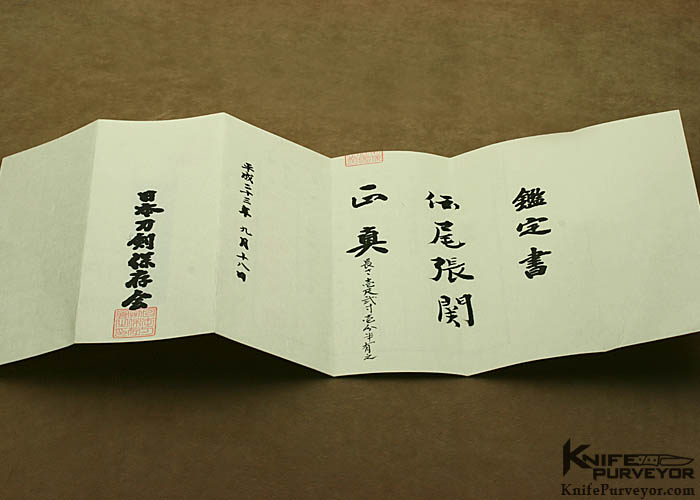 鑑定書
伝尾張関
正真
長さ壱尺弐寸壱分半有之
平成二十三年 九月十八日
日本刀剣保存会
KNIFE
PURVEYOR
KnifePurveyor.com